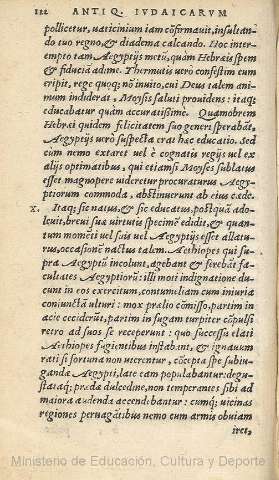 122 ANTIQ. IVDAICARVM
pollicetur, uaticinium iam cõfirmauit, insultan-
do tuo regno, & diadema calcando. Hoc inter-
empto tam Aegyptijs metũ, quàm Hebræis spem
& fiduciã adime. Thermutis uerò confestim eum
eripit, rege quoq; nõ inuito, cui Deus talem ani-
mum indiderat, Moysis saluti prouidens: itaq;
educabatur quàm accuratißimè. Quamobrem
Hebræi quidem felicitatem suo generi sperabãt,
Aegyptijs uerò suspecta erat hæc educatio. Sed
cum nemo extaret uel è cognatis regijs uel ex
alijs optimatibus, qui etiamsi Moyses sublatus
esset magnopere uideretur procuraturus Aegy-
ptiorum commoda, abstinuerunt ab eius cæde.
X. Itaq; sic natus, & sic educatus, postquã ado-
leuit, breui sua uirtutis specimẽ edidit, & quan-
tum momẽti uel suis uel Aegyptijs esset allatu-
rus, occasionẽ nactus talem. Aethiopes qui su-
pra Aegyptũ incolunt, agebant & ferebãt fa-
cultates Aegyptiorũ: illi moti indignatione du-
cunt in eos exercitum, contumeliam cum iniuria
coniunctã ulturi: mox prælio cõmisso, partim in
acie ceciderũt, partim in fugam turpiter cõpulsi
retro ad suos se receperunt: quo successu elati
Aethiopes fugientibus instabãt, & ignauum
rati si fortuna non uterentur, cõcepta spe subiu-
gandæ Aegypti, late eam populabantur: degu-
stataq; prædæ dulcedine, non temperantes sibi ad
maiora audenda accendebantur: cumq; uicinas
regiones peruagãtibus nemo cum armis obuiam
iret,
Ministerio de Educación, Cultura y Deporte